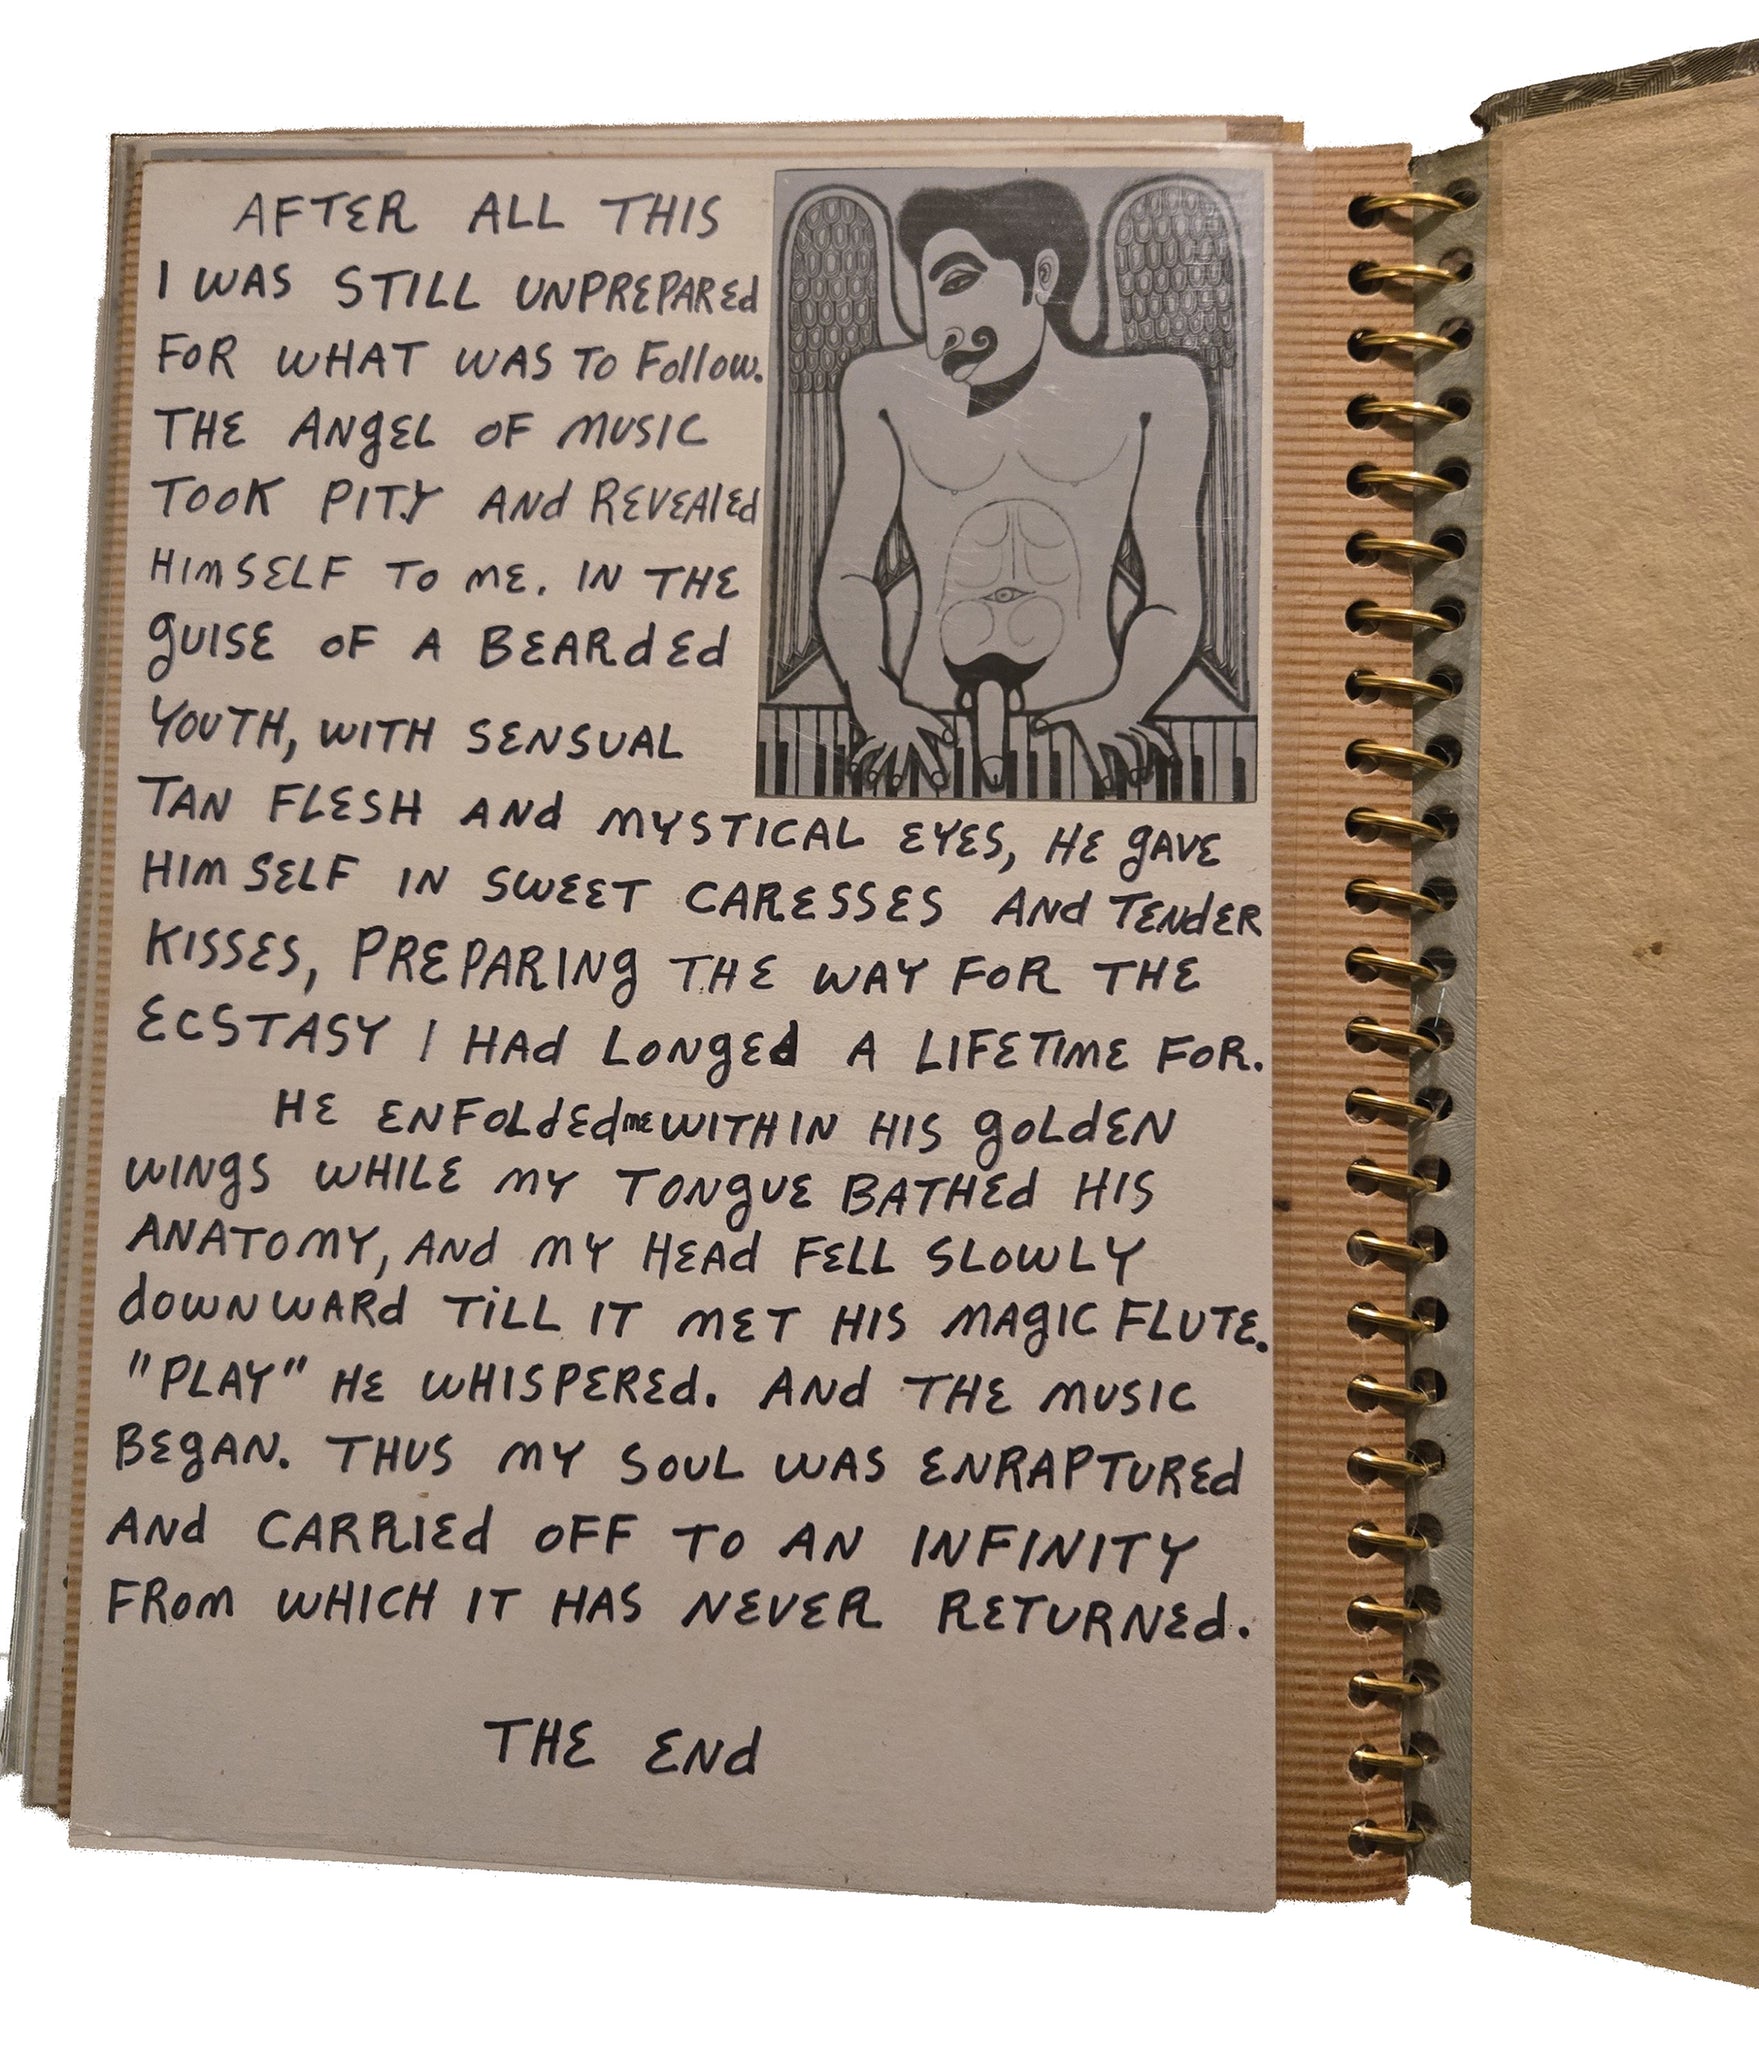 AFTER ALL THIS
I WAS STILL UNPREPAREd
FOR WHAT WAS TO Follow.
THE ANgEL OF MUSIC
TOOK PITY ANd REVEAlEd
HIMSELF TO ME. IN THE
gUISE OF A BEARdEd
YOUTH, WITH SENSUAL
TAN FLESH ANd MYSTICAL EYES, HE gAVE
HIMSELF IN SWEET CARESSES ANd TENdER
KISSES, PREPARINg THE WAY FOR THE
ECSTASY I HAd LONgEd A LIFETIME FOR.
HE ENFOLdEd ME WITHIN HIS gOLdEN
WINgS WHILE MY TONgUE BATHEd HIS
ANATOMY, ANd MY HEAd FELL SLOWLY
dOWNWARd TiLL IT MET HIS MAgIC FLUTE.
"PLAY" HE WHISPEREd. ANd THE MUSIC
BEgAN. THUS MY SOUL WAS ENRAPTUREd
ANd CARRIEd OFF TO AN INFINITY
FROM WHICH IT HAS NEVER RETURNEd.
THE ENd